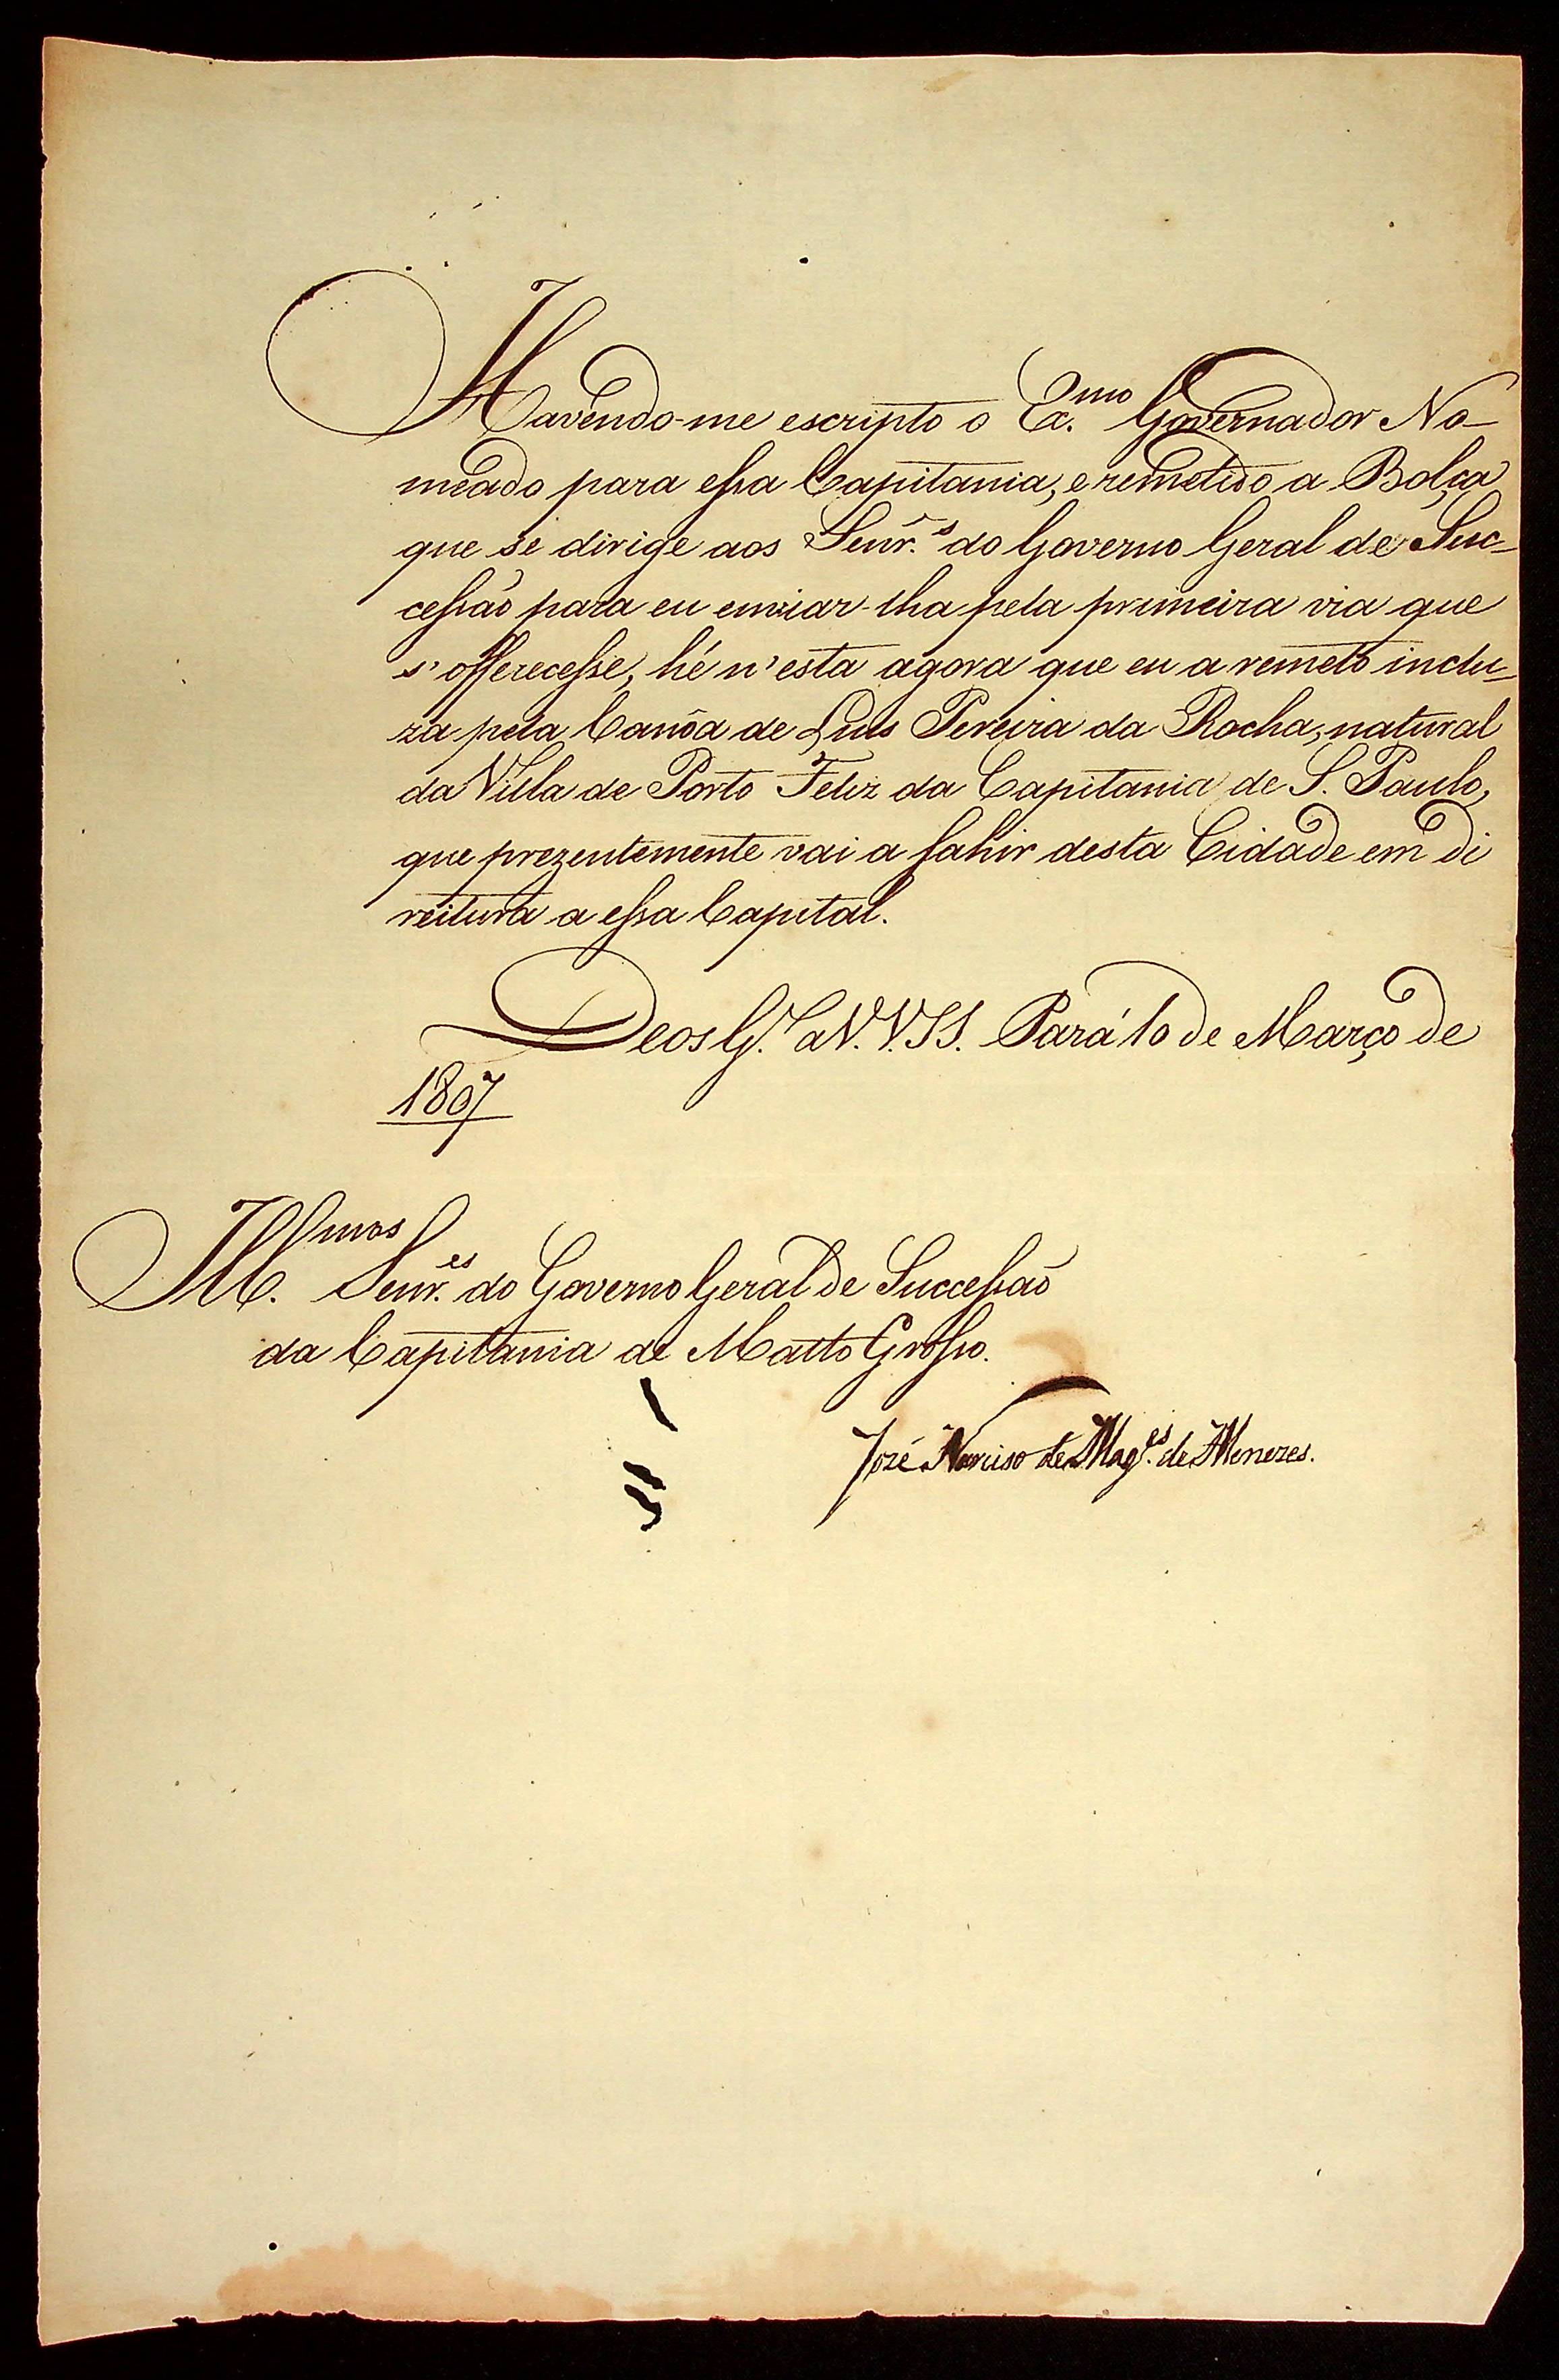 Havendo-me escripto o Ex.mo Governador No-
meado para essa Capitania, e remetido a Bolça
que se dirige aos Senr.s do Governo Geral de Suc-
cessão para eu enviar-lha pela primeira via que
s'offerecesse, hé n'esta agora que eu a remeto inclu-
za pela Canôa de Luis Pereira da Rocha, natural
da Villa de Porto Feliz da Capitania de S. Paulo,
que prezentemente vai a sahir desta Cidade em di
reitura a essa Capital.
Deos G.e a V.V.SS. Pará 10 de Março de
1807
Ill.mos Senr.es do Governo Geral de Successão
da Capitania de Matto Grosso.
José Narciso de Mag.es de Menezes.